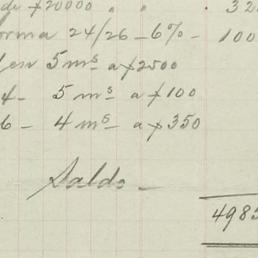 de ɟ20000 " " 32
orma 24/26 - 6% - 100
Jen 5 mˢ a ɟ2500
4 - 5 mˢ a ɟ100
6 - 4 mˢ a ɟ350
Saldo -
4983